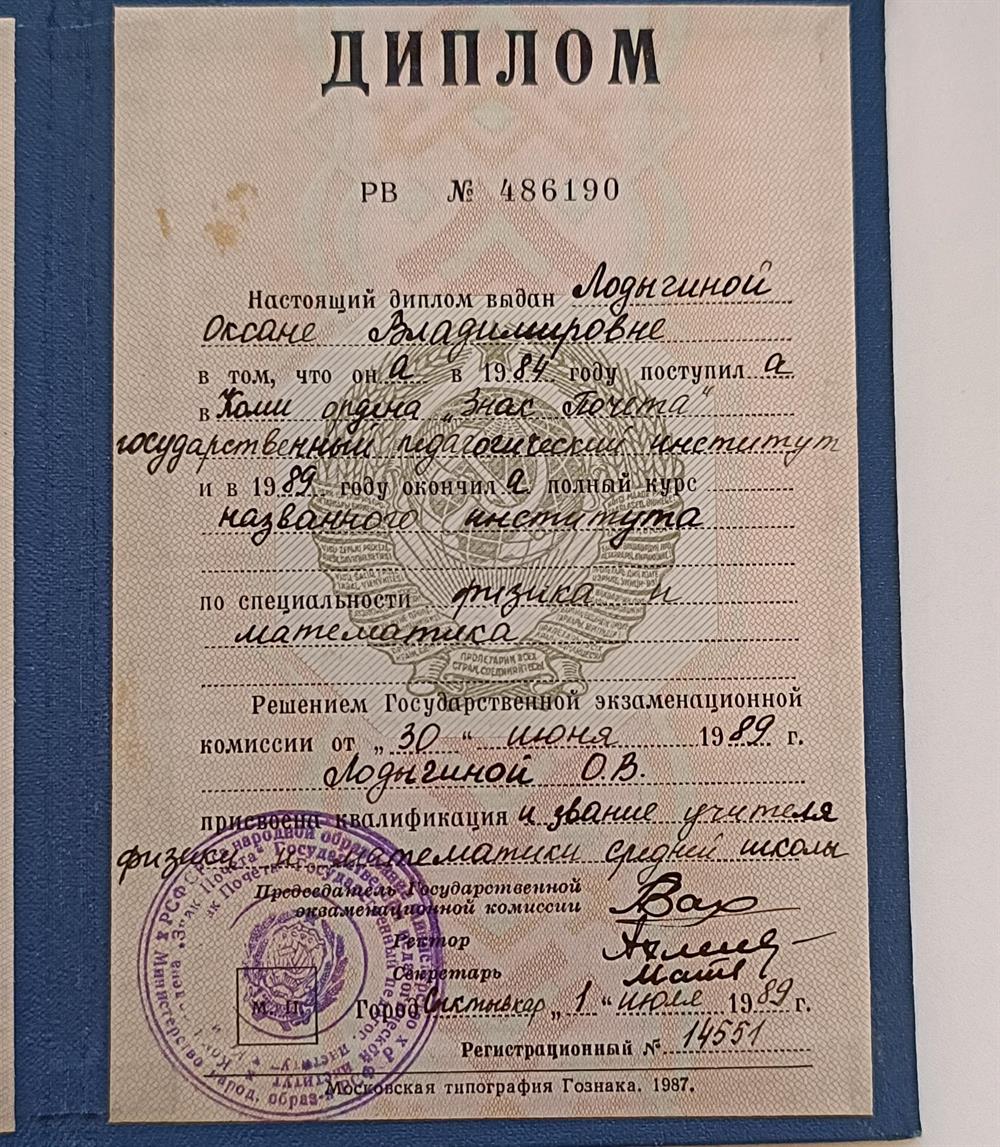 ДИПЛОМ
РВ № 486190
Настоящий диплом выдан Лодыгиной
Оксане Владимировне
в том, что он а в 1984 году поступил а
в Коми ордена „Знак Почёта"
государственный педагогический институт
и в 1989 году окончил а полный курс
названного института
по специальности физика и
математика
ПРОЛЕТАРИИ ВСЕХ
СТРАН, СОЕДИНЯЙТЕСЬ!
Решением Государственной экзаменационной
комиссии от „30" июня 1989 г.
Лодыгиной О.В.
присвоена квалификация и звание учителя
физики и математики средней школы
Председатель Государственной
экзаменационной комиссии
Ректор
Секретарь
М. П.
Город Сыктывкар „1" июля 1989 г.
Регистрационный № 14551
Московская типография Гознака. 1987.